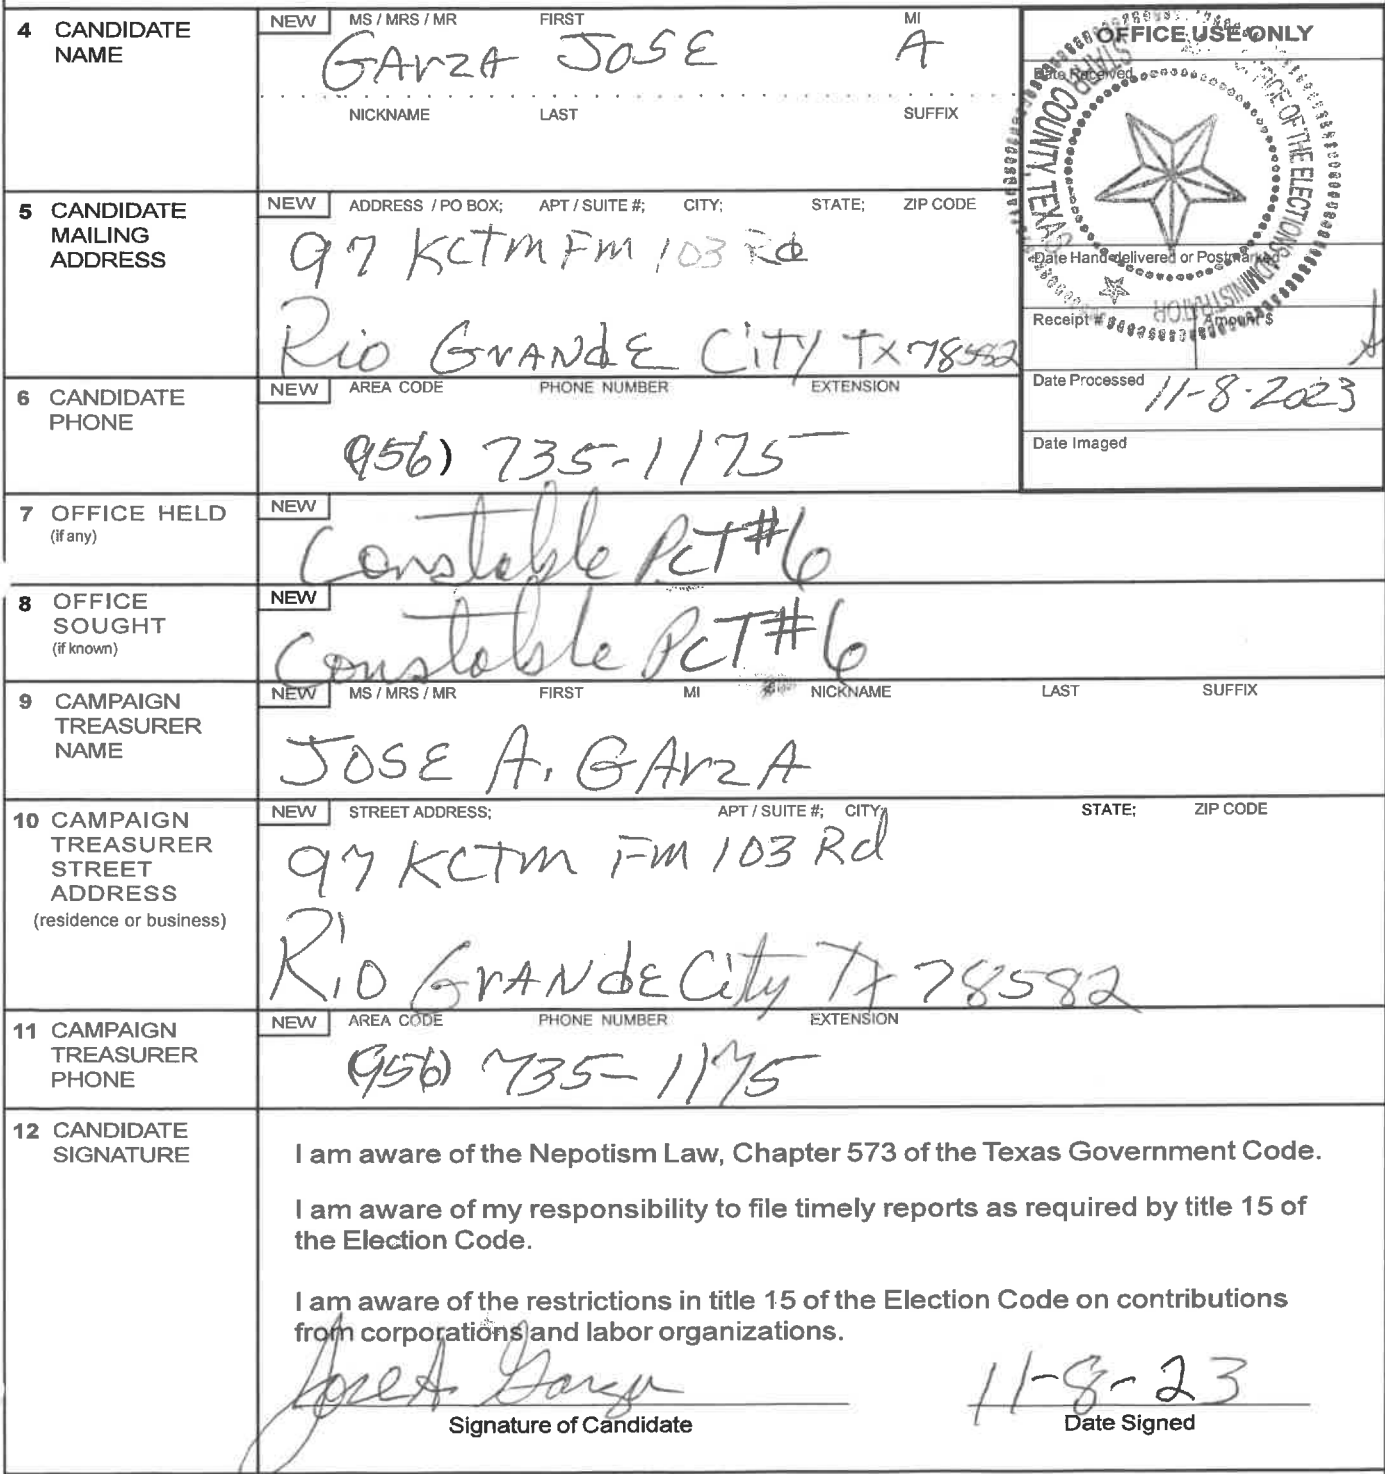 4 CANDIDATE NAME
NEW MS / MRS / MR FIRST MI
GArzA JOSE A
NICKNAME LAST SUFFIX
OFFICE USE ONLY
Date Received
STARR COUNTY, TEXAS
OFFICE OF THE ELECTIONS ADMINISTRATOR
Date Hand-delivered or Postmarked
Receipt # Amount $
Date Processed 11-8-2023
Date Imaged
5 CANDIDATE MAILING ADDRESS
NEW ADDRESS / PO BOX; APT / SUITE #; CITY; STATE; ZIP CODE
97 KCTM FM 103 Rd
Rio GrANdE CiTY TX 78582
6 CANDIDATE PHONE
NEW AREA CODE PHONE NUMBER EXTENSION
(956) 735-1175
7 OFFICE HELD (if any)
NEW
Constable PcT #6
8 OFFICE SOUGHT (if known)
NEW
Constable PcT #6
9 CAMPAIGN TREASURER NAME
NEW MS / MRS / MR FIRST MI NICKNAME LAST SUFFIX
JOSE A. GArzA
10 CAMPAIGN TREASURER STREET ADDRESS (residence or business)
NEW STREET ADDRESS; APT / SUITE #; CITY; STATE; ZIP CODE
97 KCTM FM 103 Rd
RiO GrANdE City Tx 78582
11 CAMPAIGN TREASURER PHONE
NEW AREA CODE PHONE NUMBER EXTENSION
(956) 735-1175
12 CANDIDATE SIGNATURE
I am aware of the Nepotism Law, Chapter 573 of the Texas Government Code.
I am aware of my responsibility to file timely reports as required by title 15 of
the Election Code.
I am aware of the restrictions in title 15 of the Election Code on contributions
from corporations and labor organizations.
Jose A Garza 11-8-23
Signature of Candidate Date Signed